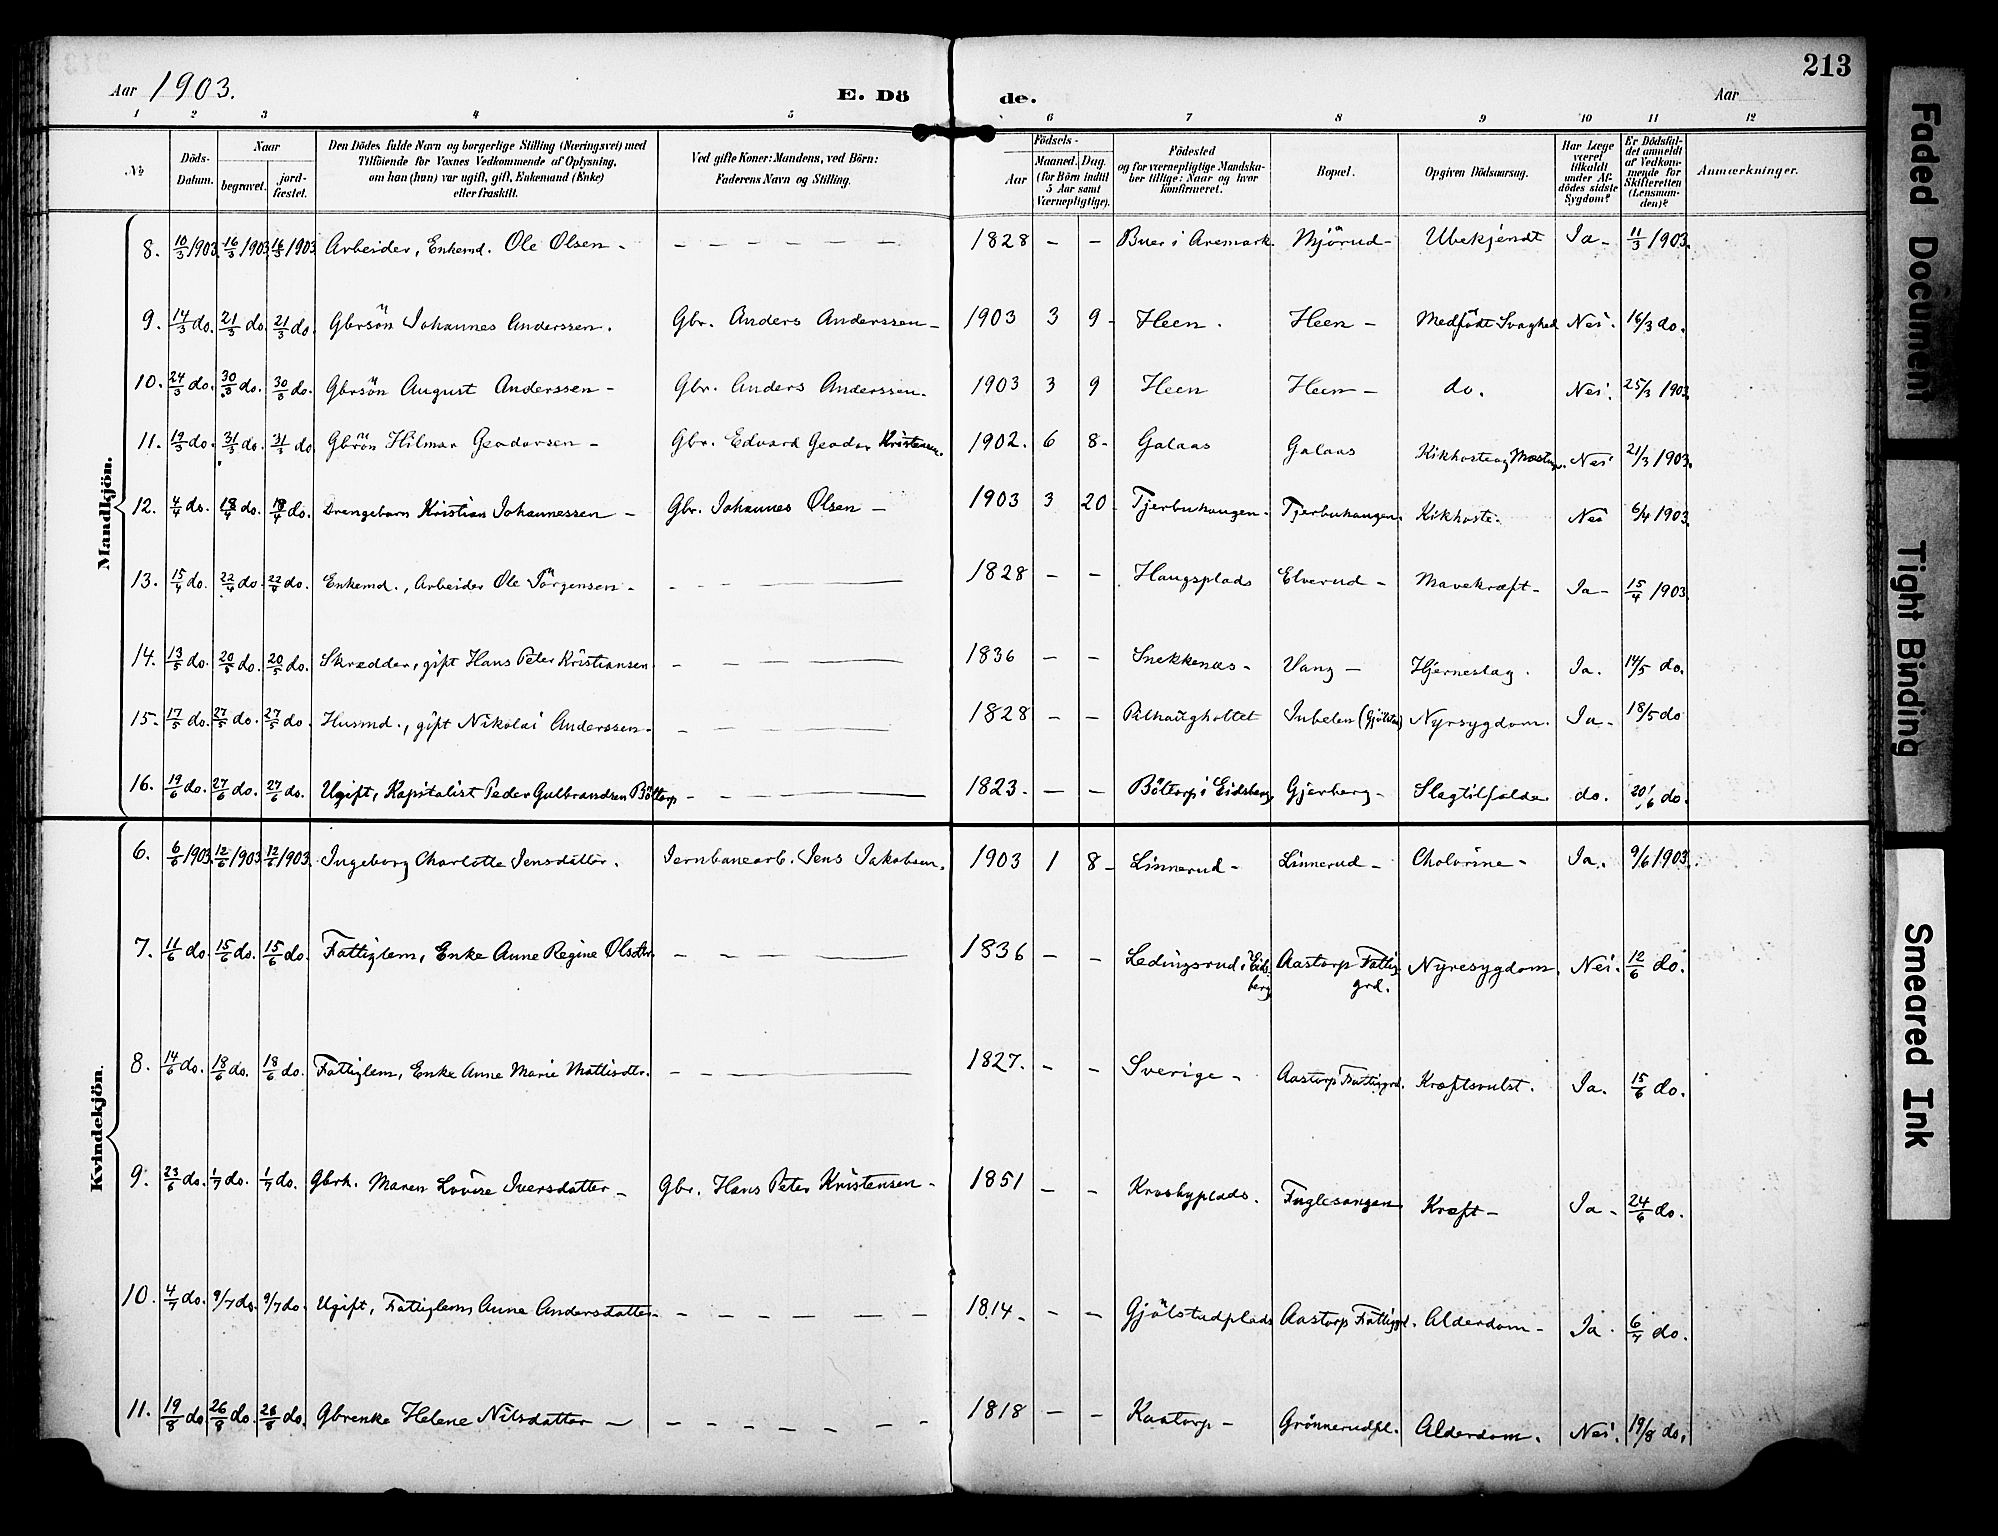 213
Aar 1903.
E. Döde.
Aar
1 2 3 4 5 6 7 8 9 10 11 12
№
Döds-Datum.
Naar
begravet.
jordfæstet.
Den Dödes fulde Navn og borgerlige Stilling (Næringsvei) med
Tilföiende for Voxnes Vedkommende af Oplysning,
om han (hun) var ugift, gift, Enkemand (Enke)
eller fraskilt.
Ved gifte Koner: Mandens, ved Börn:
Faderens Navn og Stilling.
Födsels-
Aar
Maaned. Dag.
(for Börn indtil
5 Aar samt
Værnepligtige).
Födested
og for værnepligtige Mandskaber tillige: Naar og hvor
konfirmeret.
Bopæl.
Opgiven Dödsaarsag.
Har Læge
været
tilkaldt
under Afdödes sidste
Sygdom?
Er Dödsfaldet anmeldt
af Vedkommende for
Skifteretten
(Lensmanden)?
Anmærkninger.
Mandkjön.
8. 10/3 1903 16/3 1903 16/3 1903 Arbeider, Enkemd. Ole Olsen - — — — — — — 1828 — — Buer i Aremark. Mjörud - Ubekjendt Ja - 11/3 1903.
9. 14/3 do. 21/3 do. 21/3 do. Gbrsön Johannes Anderssen. Gbr. Anders Anderssen - 1903 3 9 - Heen. Heen - Medfödt Svaghed Nei. 16/3 do.
10. 24/3 do. 30/3 do. 30/3 do. Gbrsön August Anderssen - Gbr. Anders Anderssen. 1903 3 9 Heen Heen - do. Nei. 25/3 1903.
11. 19/3 do. 31/3 do. 31/3 do Gbrön Hilmar Geodorsen - Gbr. Edvard Geodor Kristensen. 1902. 6 8 - Galaas Galaas Kikhoste og Nei 21/3 1903.
12. 4/4 do. 18/4 do. 18/4 do. Drengebarn Kristian Johannessen - Gbr. Johannes Olsen - 1903 3 20 - Tjerbuhaugen - Tjerbuhaugen. Kikhoste. Nei 6/4 1903
13. 15/4 do. 22/4 do. 22/4 do. Enkemd., Arbeider Ole Jörgensen - - — — 1828 — — Haugsplads Elverud - Mavekræft - Ja - 15/4 1903.
14. 13/5 do. 20/5 do. 20/5 do. Skredder, gift Hans Peter Kristiansen - — — 1836 — — Snekkenæs - Vang - Hjerneslag. Ja. 14/5 do.
15. 17/5 do. 27/5 do. 27/5 do. Husmd., gift Nikolai Anderssen - - — — 1828 — — Pilhaugholtet Nyrsygdom. Ja - 18/5 do
16. 19/6 do. 27/6 do. 27/6 do. Ugift, Kapitalist Peder Gulbrandsen Böltorp - — — 1823. — — Böltorp i Eidsberg Gjerberg - Slagtilfælde do. 20/6 do.
Kvindekjön.
6. 6/6 1903. 12/6 1903 12/6 1903. Ingeborg Charlotte Jensdatter. Jernbanearb. Jens Jakobsen. 1903 1 8 - Linnerud - Linnerud - Cholorine - Ja. 9/6 1903.
7. 11/6 do. 15/6 do. 15/6 do. Fattiglem, Enke Anne Regine Olsdtr. - — — 1836 — — Ledingsrud i Eidsberg Aastorp Fattiggrd. Nyresygdom. Nei. 12/6 do.
8. 14/6 do. 18/6 do. 18/6 do. Fattiglem, Enke Anne Marie Mattisdtr. - — — 1827. - - Sverige - Aastorp Fattiggrd. Kræftsvulst. Ja. 15/6 do.
9. 23/6 do. 1/7 do. 1/7 do. Gbrk. Maren Lovise Iversdatter - Gbr. Hans Peter Kristensen - 1851 — — Krosbyplads. Fuglesangen Kræft - Ja - 24/6 do.
10. 4/7 do. 9/7 do. 9/7 do. Ugift, Fattiglem Anne Andersdatter - - — — — — 1814 - - — Gjölstadplads Aastorp Fattiggrd. Alderdom - Ja. 6/7 do.
11. 19/8 do. 26/8 do. 26/8 do. Gbrenke Helene Nilsdatter - — — — — — 1818 — — Kastorp - Grönnerudpl. Alderdom. Nei. 19/8 do.
Faded Document
Tight Binding
Smeared Ink